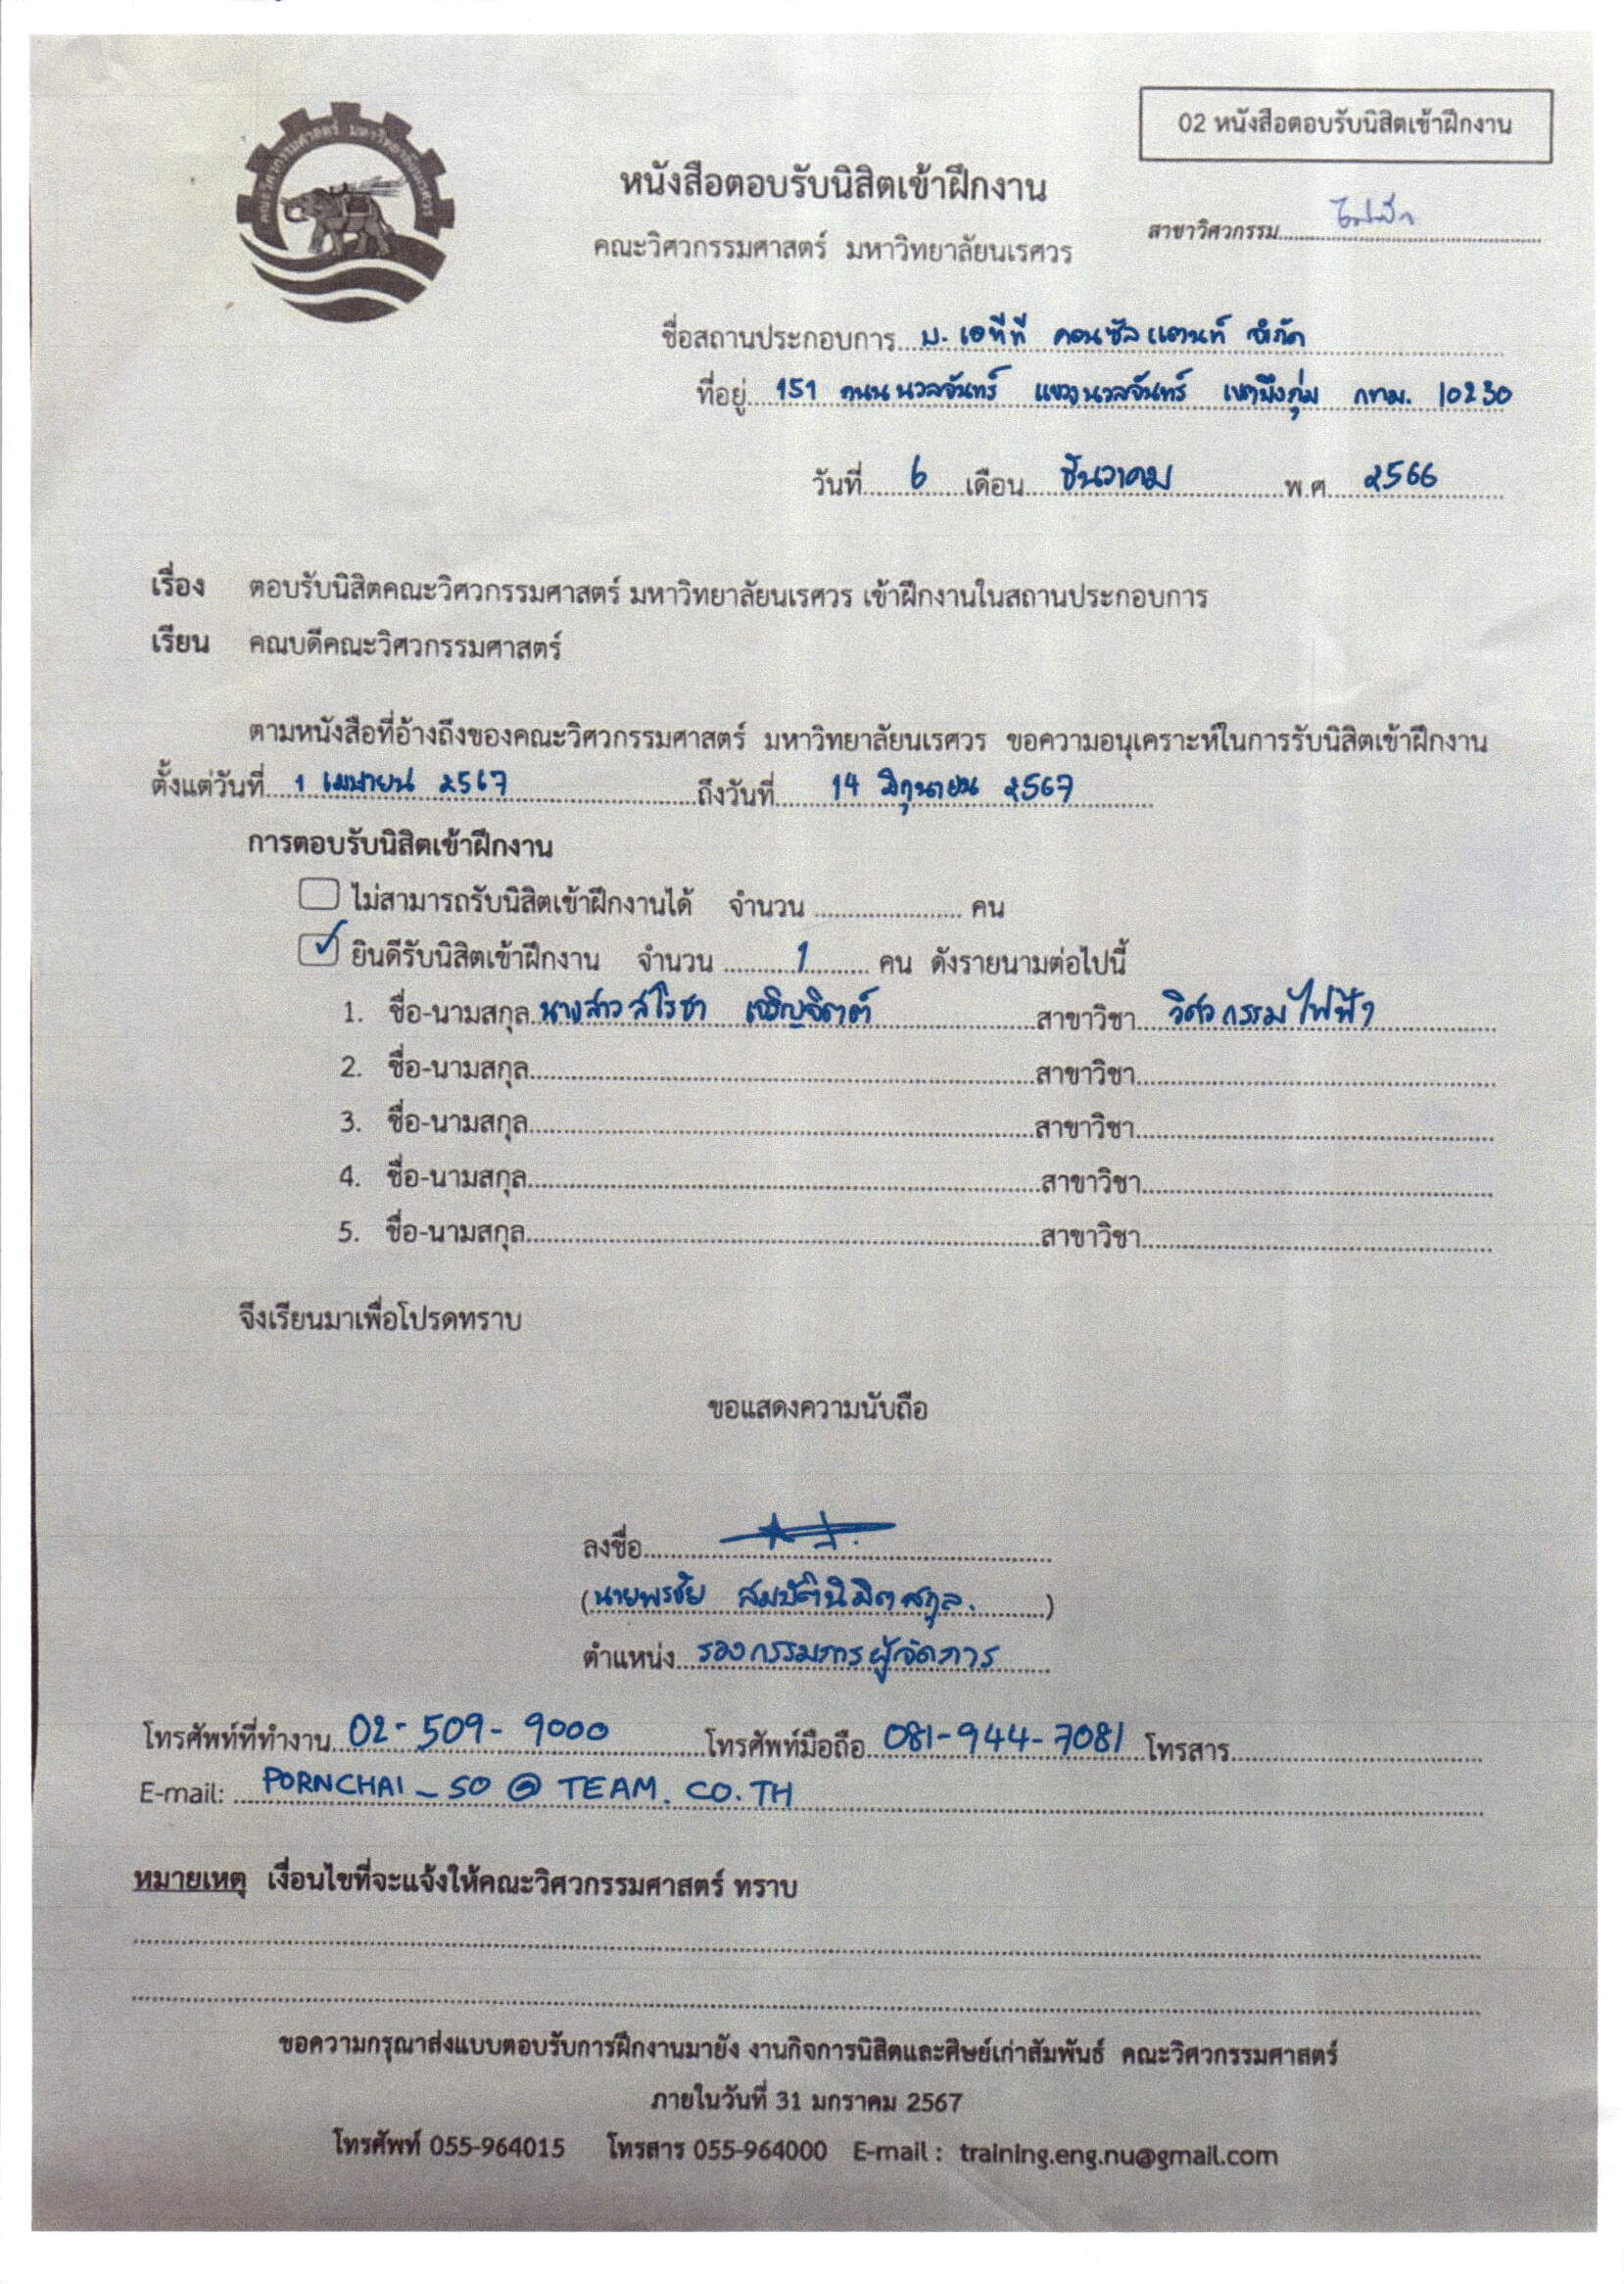 02 หนังสือตอบรับนิสิตเข้าฝึกงาน
คณะวิศวกรรมศาสตร์ มหาวิทยาลัยนเรศวร
หนังสือตอบรับนิสิตเข้าฝึกงาน
สาขาวิศวกรรม ไฟฟ้า
คณะวิศวกรรมศาสตร์ มหาวิทยาลัยนเรศวร
ชื่อสถานประกอบการ บ. เอทีที คอนซัลแตนท์ จำกัด
ที่อยู่ 151 ถนนนวลจันทร์ แขวงนวลจันทร์ เขตบึงกุ่ม กทม. 10230
วันที่ 6 เดือน ธันวาคม พ.ศ. 2566
เรื่อง ตอบรับนิสิตคณะวิศวกรรมศาสตร์ มหาวิทยาลัยนเรศวร เข้าฝึกงานในสถานประกอบการ
เรียน คณบดีคณะวิศวกรรมศาสตร์
ตามหนังสือที่อ้างถึงของคณะวิศวกรรมศาสตร์ มหาวิทยาลัยนเรศวร ขอความอนุเคราะห์ในการรับนิสิตเข้าฝึกงาน
ตั้งแต่วันที่ 1 เมษายน 2567 ถึงวันที่ 14 มิถุนายน 2567
การตอบรับนิสิตเข้าฝึกงาน
ไม่สามารถรับนิสิตเข้าฝึกงานได้ จำนวน ........ คน
✓ ยินดีรับนิสิตเข้าฝึกงาน จำนวน 1 คน ดังรายนามต่อไปนี้
1. ชื่อ-นามสกุล นางสาวสโรชา เจริญจิตต์ สาขาวิชา วิศวกรรมไฟฟ้า
2. ชื่อ-นามสกุล ........ สาขาวิชา ........
3. ชื่อ-นามสกุล ........ สาขาวิชา ........
4. ชื่อ-นามสกุล ........ สาขาวิชา ........
5. ชื่อ-นามสกุล ........ สาขาวิชา ........
จึงเรียนมาเพื่อโปรดทราบ
ขอแสดงความนับถือ
ลงชื่อ
(นายพรชัย สมบัตินิมิตสกุล.)
ตำแหน่ง รองกรรมการผู้จัดการ
โทรศัพท์ที่ทำงาน 02-509-9000 โทรศัพท์มือถือ 081-944-7081 โทรสาร ........
E-mail: PORNCHAI_SO@TEAM.CO.TH
หมายเหตุ เงื่อนไขที่จะแจ้งให้คณะวิศวกรรมศาสตร์ ทราบ
ขอความกรุณาส่งแบบตอบรับการฝึกงานมายัง งานกิจการนิสิตและศิษย์เก่าสัมพันธ์ คณะวิศวกรรมศาสตร์
ภายในวันที่ 31 มกราคม 2567
โทรศัพท์ 055-964015 โทรสาร 055-964000 E-mail : training.eng.nu@gmail.com